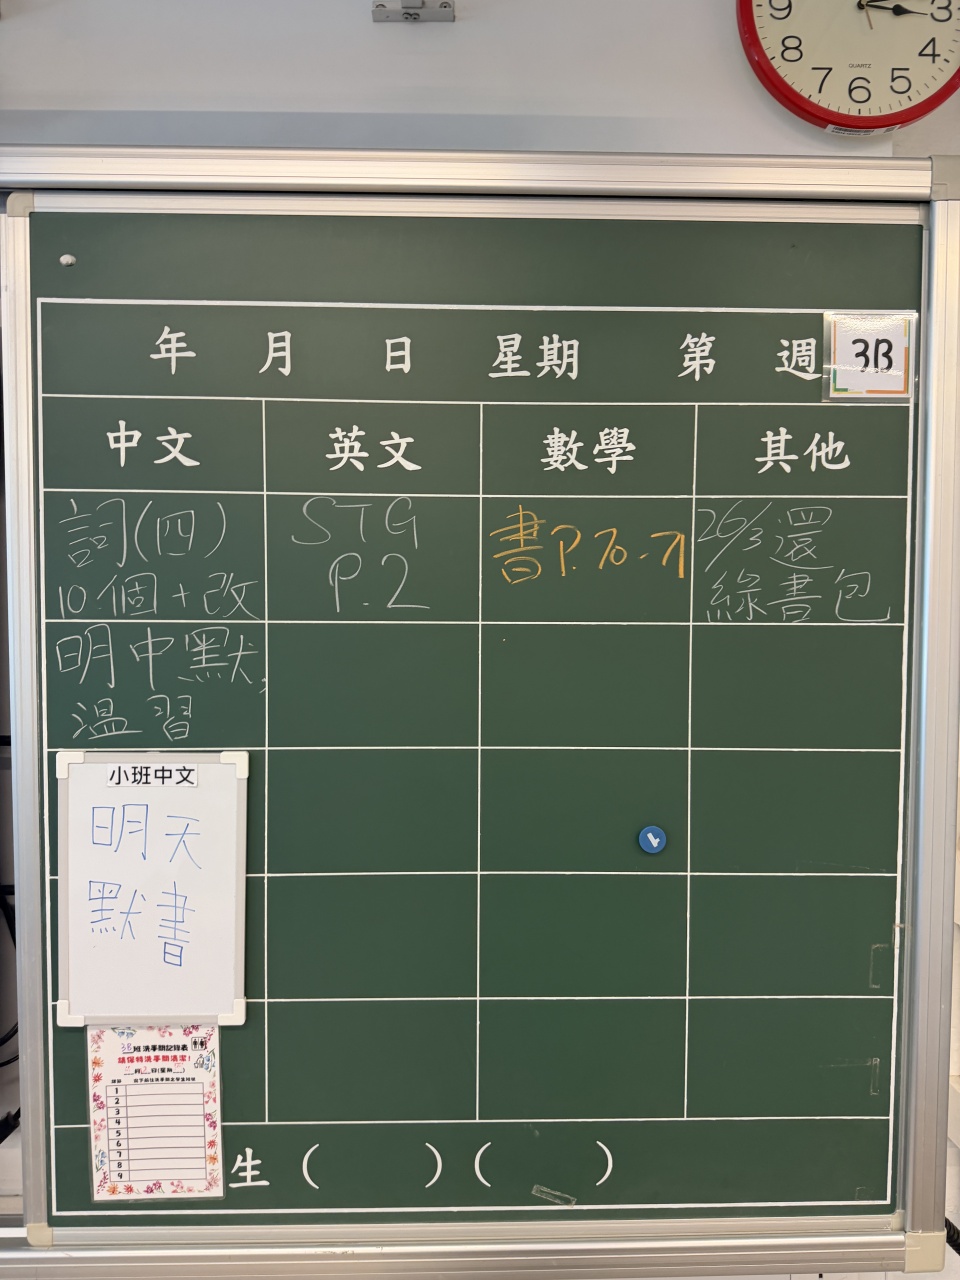 9 3
8 4
7 6 5
QUARTZ
年 月 日 星期 第 週
3B
中文 英文 數學 其他
詞(四)
10個+改
STG
P.2
書P.70-71
26/3還
綠書包
明中默,
溫習
小班中文
明天
默書
3B班洗手間記錄表
請保持洗手間清潔!
月 日(星期 )
1
2
3
4
5
6
7
8
9
生( )( )